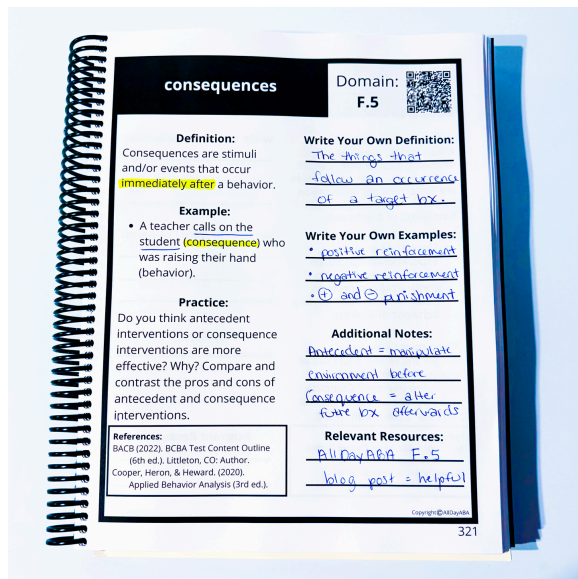 consequences
Domain:
F.5
Definition:
Consequences are stimuli
and/or events that occur
immediately after a behavior.
Example:
• A teacher calls on the
student (consequence) who
was raising their hand
(behavior).
Practice:
Do you think antecedent
interventions or consequence
interventions are more
effective? Why? Compare and
contrast the pros and cons of
antecedent and consequence
interventions.
References:
BACB (2022). BCBA Test Content Outline
(6th ed.). Littleton, CO: Author.
Cooper, Heron, & Heward. (2020).
Applied Behavior Analysis (3rd ed.).
Write Your Own Definition:
The things that
follow an occurrence
of a target bx.
Write Your Own Examples:
• positive reinforcement
• negative reinforcement
• ⊕ and ⊖ punishment
Additional Notes:
Antecedent = manipulate
environment before
Consequence = alter
future bx afterwards
Relevant Resources:
AllDayABA F.5
blog post = helpful
Copyright©AllDayABA
321